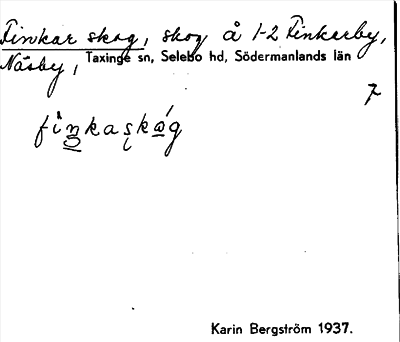 Finkar skog, skog å 1-2 Finkarby,
Näsby, Taxinge sn, Selebo hd, Södermanlands län
7
finkaskog
Karin Bergström 1937.